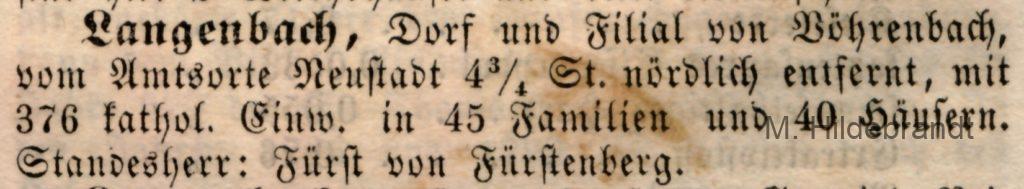 Langenbach, Dorf und Filial von Vöhrenbach,
vom Amtsorte Neustadt 4³/₄ St. nördlich entfernt, mit
376 kathol. Einw. in 45 Familien und 40 Häusern.
M. Hildebrandt
Standesherr: Fürst von Fürstenberg.